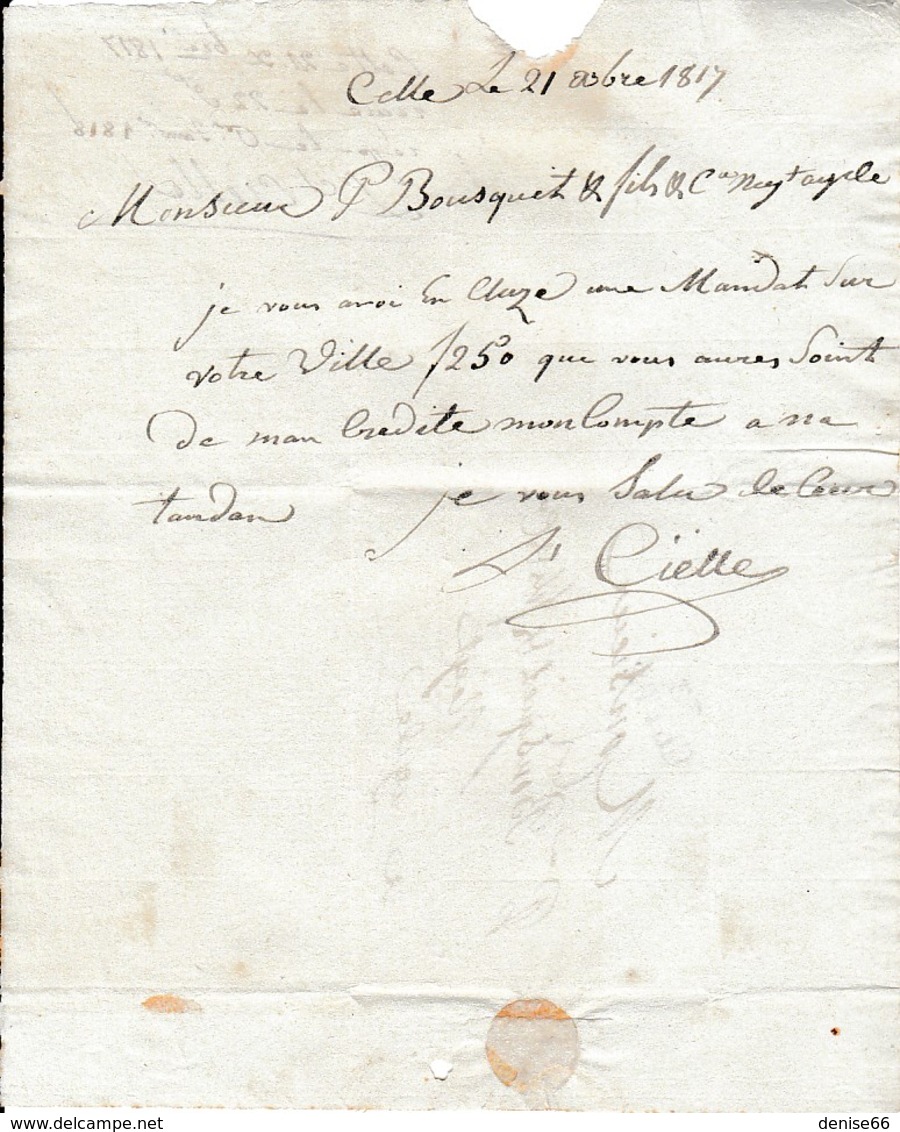 Cette Le 21 xbre 1817
Monsieur P Bousquet & fils & Cie negt agde
je vous avoi En cluze une Mandat Sur
votre Ville f 250 que vous aures Soint
de man Credite mon Compte a na
tandan je vous Salu de Coeur
Cielle
delcampe.net
denise66